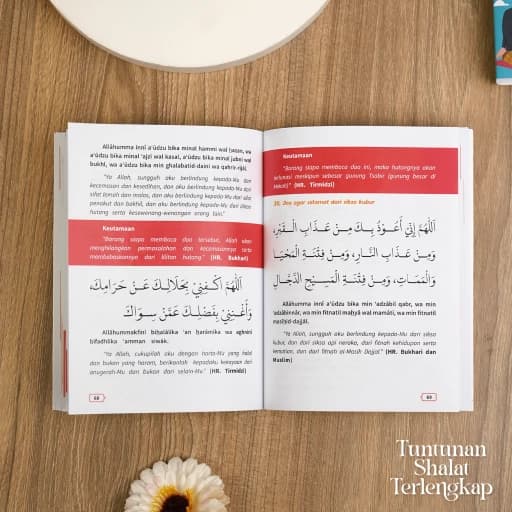 Allâhumma innî a'ûdzu bika minal hammi wal hazan, wa
a'ûdzu bika minal 'ajzi wal kasal, a'ûdzu bika minal jubni wal
bukhl, wa a'ûdzu bika min ghalabatid-daini wa qahrir-rijâl.
"Ya Allah, sungguh aku berlindung kepada-Mu dari
kecemasan dan kesedihan, dan aku berlindung kepada-Mu dari
sifat lemah dan malas, dan aku berlindung kepada-Mu dari sifat
penakut dan bakhil, dan aku berlindung kepada-Mu dari lilitan
hutang serta kesewenang-wenangan orang lain."
Keutamaan
"Barang siapa membaca doa tersebut, Allah akan
menghilangkan permasalahan dan kecemasannya serta
membebaskannya dari lilitan hutang." (HR. Bukhari)
اَللّٰهُمَّ اكْفِنِيْ بِحَلَالِكَ عَنْ حَرَامِكَ،
وَأَغْنِنِيْ بِفَضْلِكَ عَمَّنْ سِوَاكَ
Allâhummakfinî bihalâlika 'an harâmika wa aghninî
bifadhlika 'amman siwâk.
"Ya Allah, cukupilah aku dengan harta-Mu yang halal
dan bukan yang haram, berikanlah kepadaku kekayaan dari
anugerah-Mu dan bukan dari selain-Mu." (HR. Tirmidzi)
68
Keutamaan
"Barang siapa membaca doa ini, maka hutangnya akan
terlunasi meskipun sebesar gunung Tsabir (gunung besar di
Mekah)." (HR. Tirmidzi)
Doa agar selamat dari siksa kubur
اَللّٰهُمَّ إِنِّيْ أَعُوْذُ بِكَ مِنْ عَذَابِ الْقَبْرِ،
وَمِنْ عَذَابِ النَّارِ، وَمِنْ فِتْنَةِ الْمَحْيَا
وَالْمَمَاتِ، وَمِنْ فِتْنَةِ الْمَسِيْحِ الدَّجَّالِ
Allâhumma innî a'ûdzu bika min 'adzâbil qabr, wa min
'adzâbinnâr, wa min fitnatil mahyâ wal mamâti, wa min fitnatil
masîhid-dajjâl.
"Ya Allah, sungguh aku berlindung kepada-Mu dari siksa
kubur, dan dari siksa api neraka, dan dari fitnah kehidupan serta
kematian, dan dari fitnah al-Masih Dajjal." (HR. Bukhari dan
Muslim)
69
Tuntunan
Shalat
Terlengkap